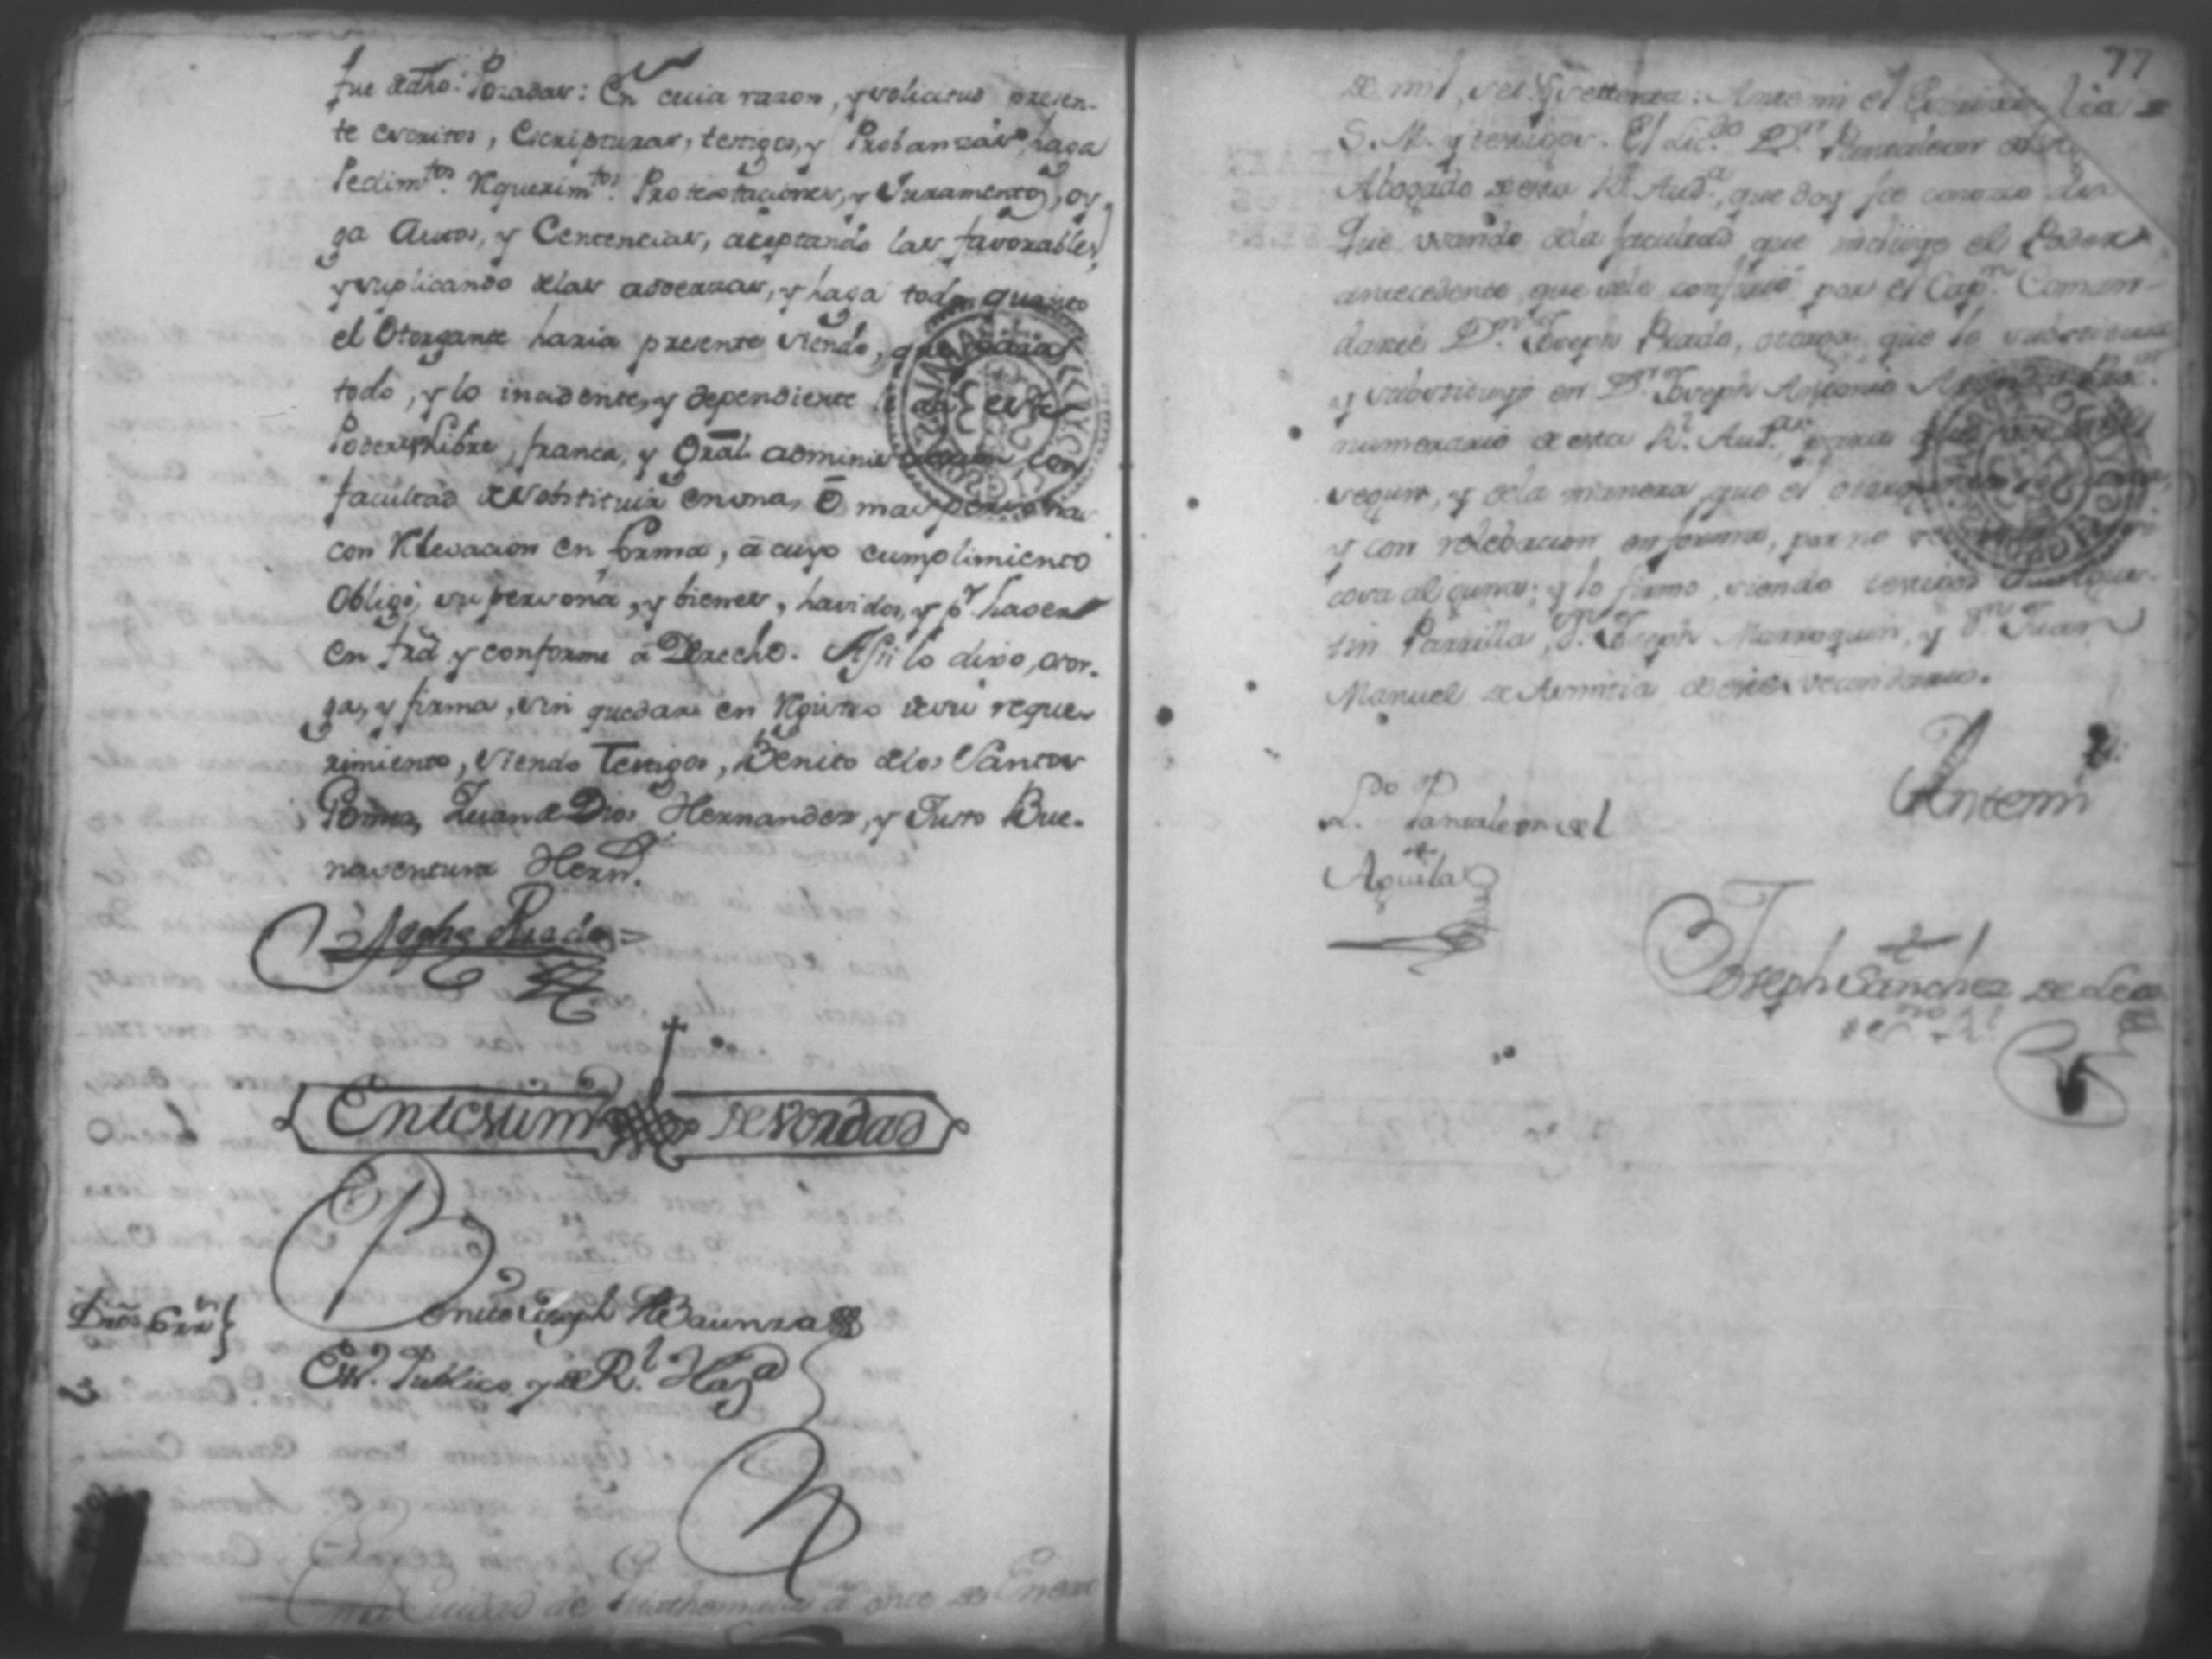 fue dho. Posadas: En cuia razon, y solicitud presen-
te escritos, Escripturas, testigos, y Probanzas haga
Pedimtos. Requerimtos. Protestaciones, y Juramentos, oy-
ga Autos, y Centencias, aceptando las favorables,
y suplicando delas adversas, y haga todo quanto
el Otorgante haria presente siendo, que para
todo, y lo insidente, y dependiente le da este
Poder, Libre, franca, y Gral. adminis con
facultad de Substituir en una, ó mas persona
con Relevacion en forma, á cuyo cumplimiento
Obligó, su persona, y bienes, havidos, y pr. haver
en fra. y conforme á Derecho. Assi lo dixo, otor-
ga, y firma, sin quedar en Registro de su reque-
rimiento, siendo Testigos, Benito delos Santos
Juan de Dios Hernandez, y Justo Bue-
naventura Hernz.
Josphe Prado
En testim de verdad
Benito Joseph
Ess. Publico, y de Rl. Hazda
Dros
En la Ciudad de Guathemala á once de Enero
77
de mil, set. y settenta: Antemi el Escrivano
S. M. y testigos. El Licdo. Dn. Pantaleon del
Abogado de esta Rl. Auda., que doy fee conozco
Que usando dela facultad que incluye el Poder
antecedente que sele confirió por el Capn. Coman-
dante Dn. Joseph Prado, otorga que lo substituia
y substituyó en Dn. Joseph Antonio
numerario de esta Rl. Auda., para que
segun, y dela manera, que el otorgante
y con relebacion en forma, por no
cosa alguna; y lo firmo, siendo testigos
tin Parrilla, Dn. Joseph Marroquin, y Dn. Juan
Manuel de de este vecindario.
Ldo. Pantaleon del
Aguila
Antemi
Joseph Sanchez de Leon